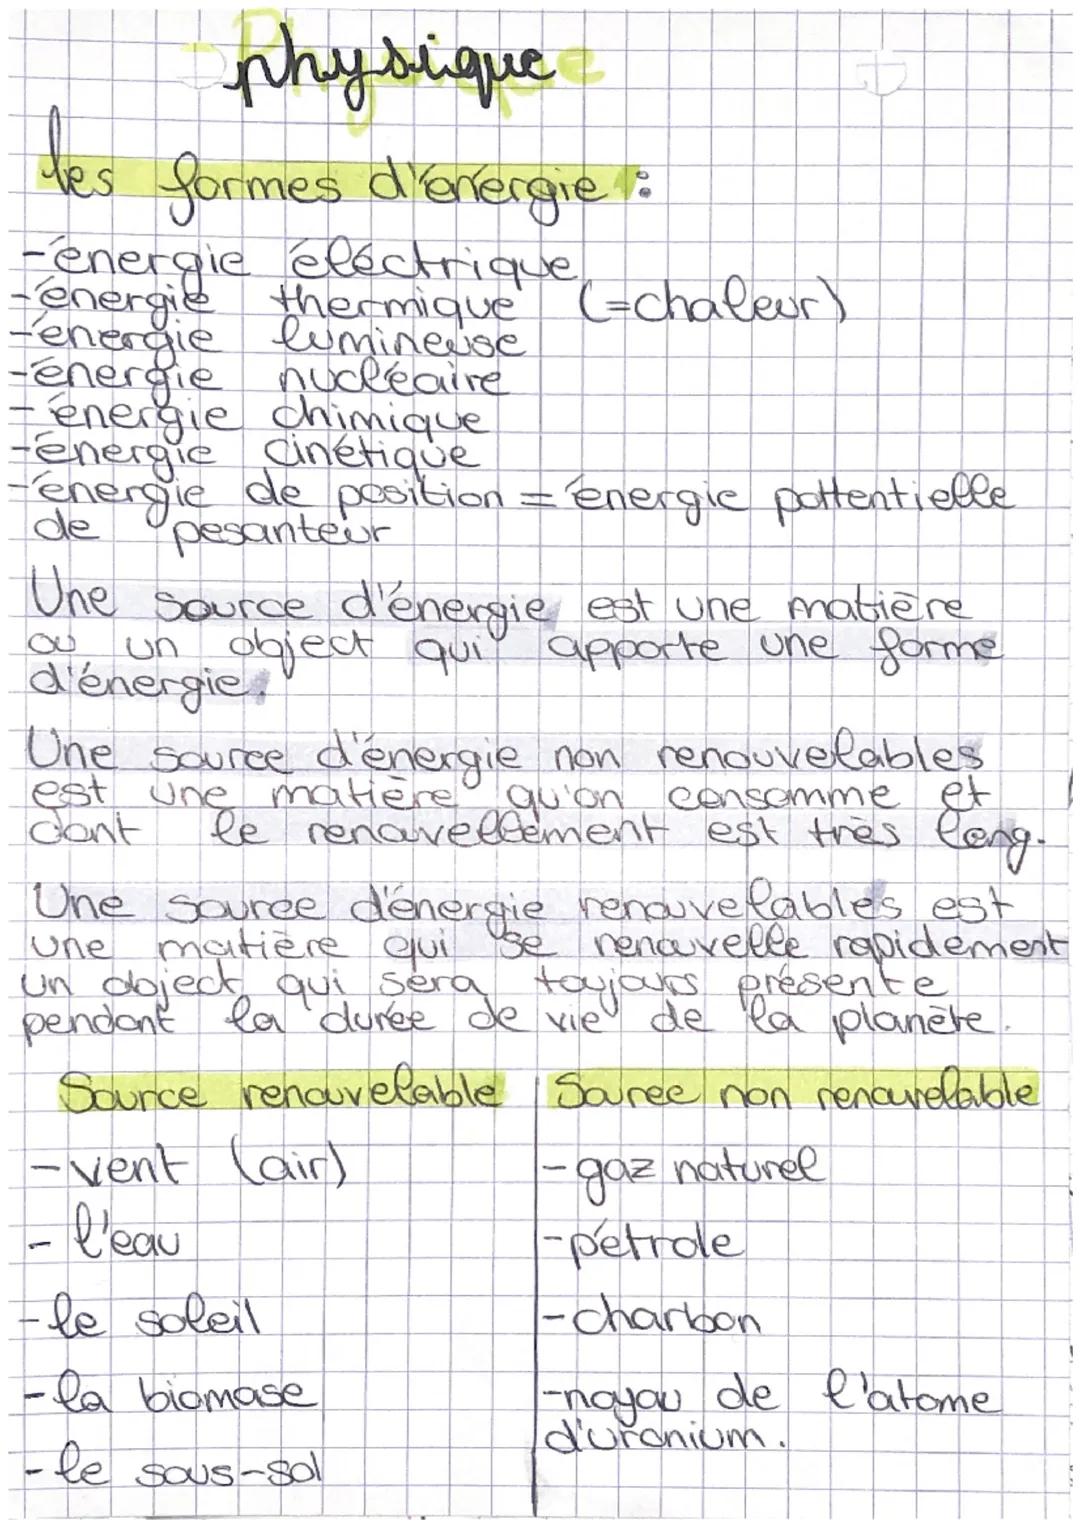 Physique
les formes d'énergie :
-énergie éléctrique
-énergie thermique (=chaleur)
-énergie lumineuse
-énergie nucléaire
-énergie chimique
-énergie cinétique
-énergie de position = énergie pottentielle
de pesanteur
Une source d'énergie est une matière
ou un object qui apporte une forme
d'énergie.
Une source d'énergie non renouvelables
est une matière qu'on consomme et
dont le renouvellement est très long.
Une source d'énergie renouvelables est
une matière qui se renouvelle rapidement
un object qui sera toujours présente
pendant la durée de vie de la planète.
Source renouvelable
Source non renouvelable
-vent (air)
-gaz naturel
- l'eau
-pétrole
-le soleil
-charbon
-la biomase
-noyau de l'atome
d'uranium.
-le sous-sol